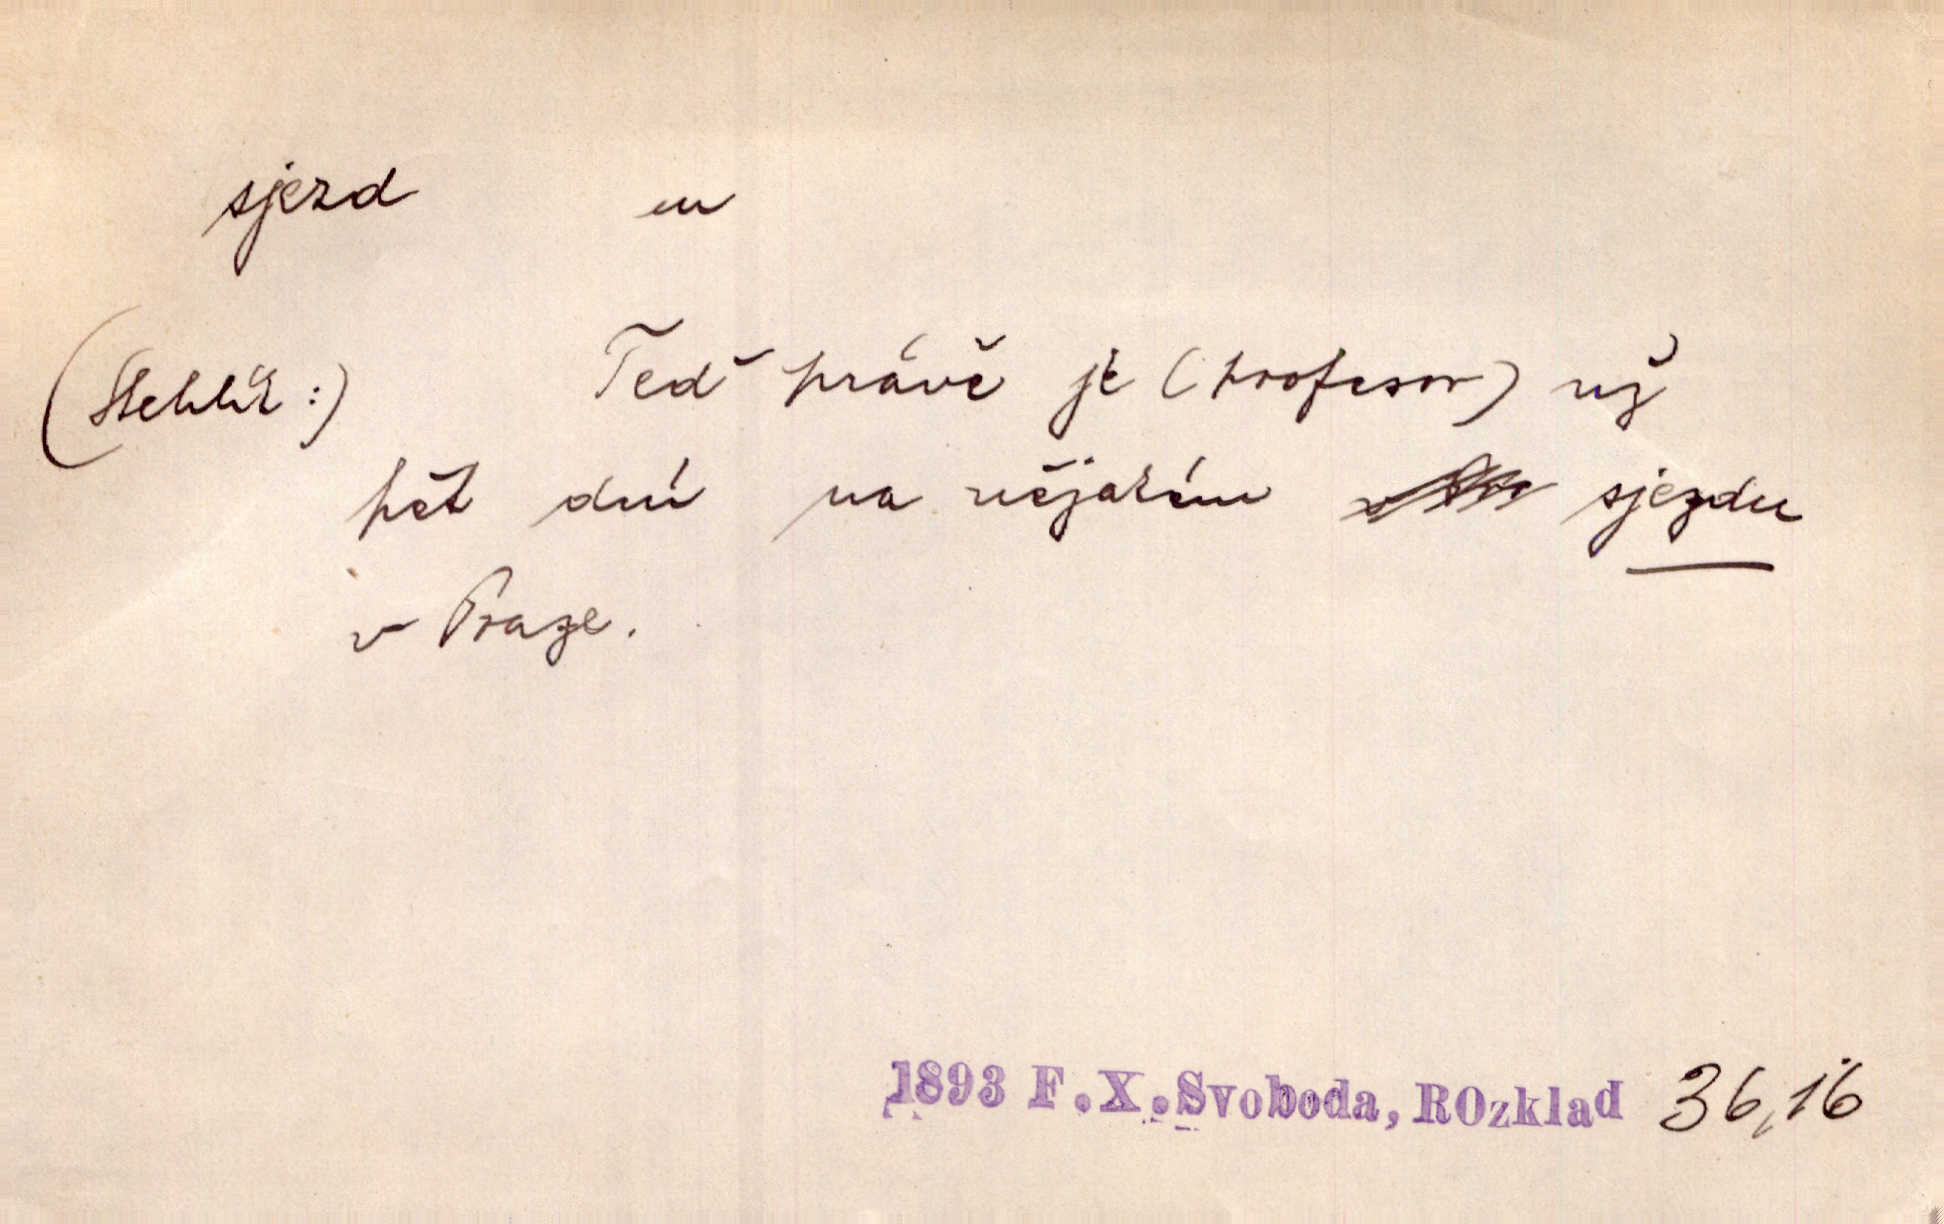 sjezd m
(Stehlík:) Teď právě je (profesor) už
pět dní na nějakém sjezdu
v Praze.
1893 F.X.Svoboda, ROzklad 36,16